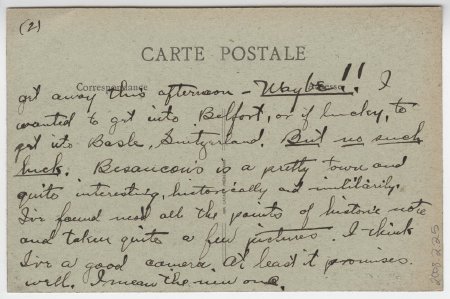 (2)
CARTE POSTALE
Correspondance
get away this afternoon – Maybe!! I
wanted to get into Belfort, or if lucky, to
get into Basle, Switzerland. But no such
luck. Besancon is a pretty town and
quite interesting, historically and militarily.
I've found most all the points of historic note
and taken quite a few pictures. I think
I've a good camera. At least it promises
well. I mean the new one.